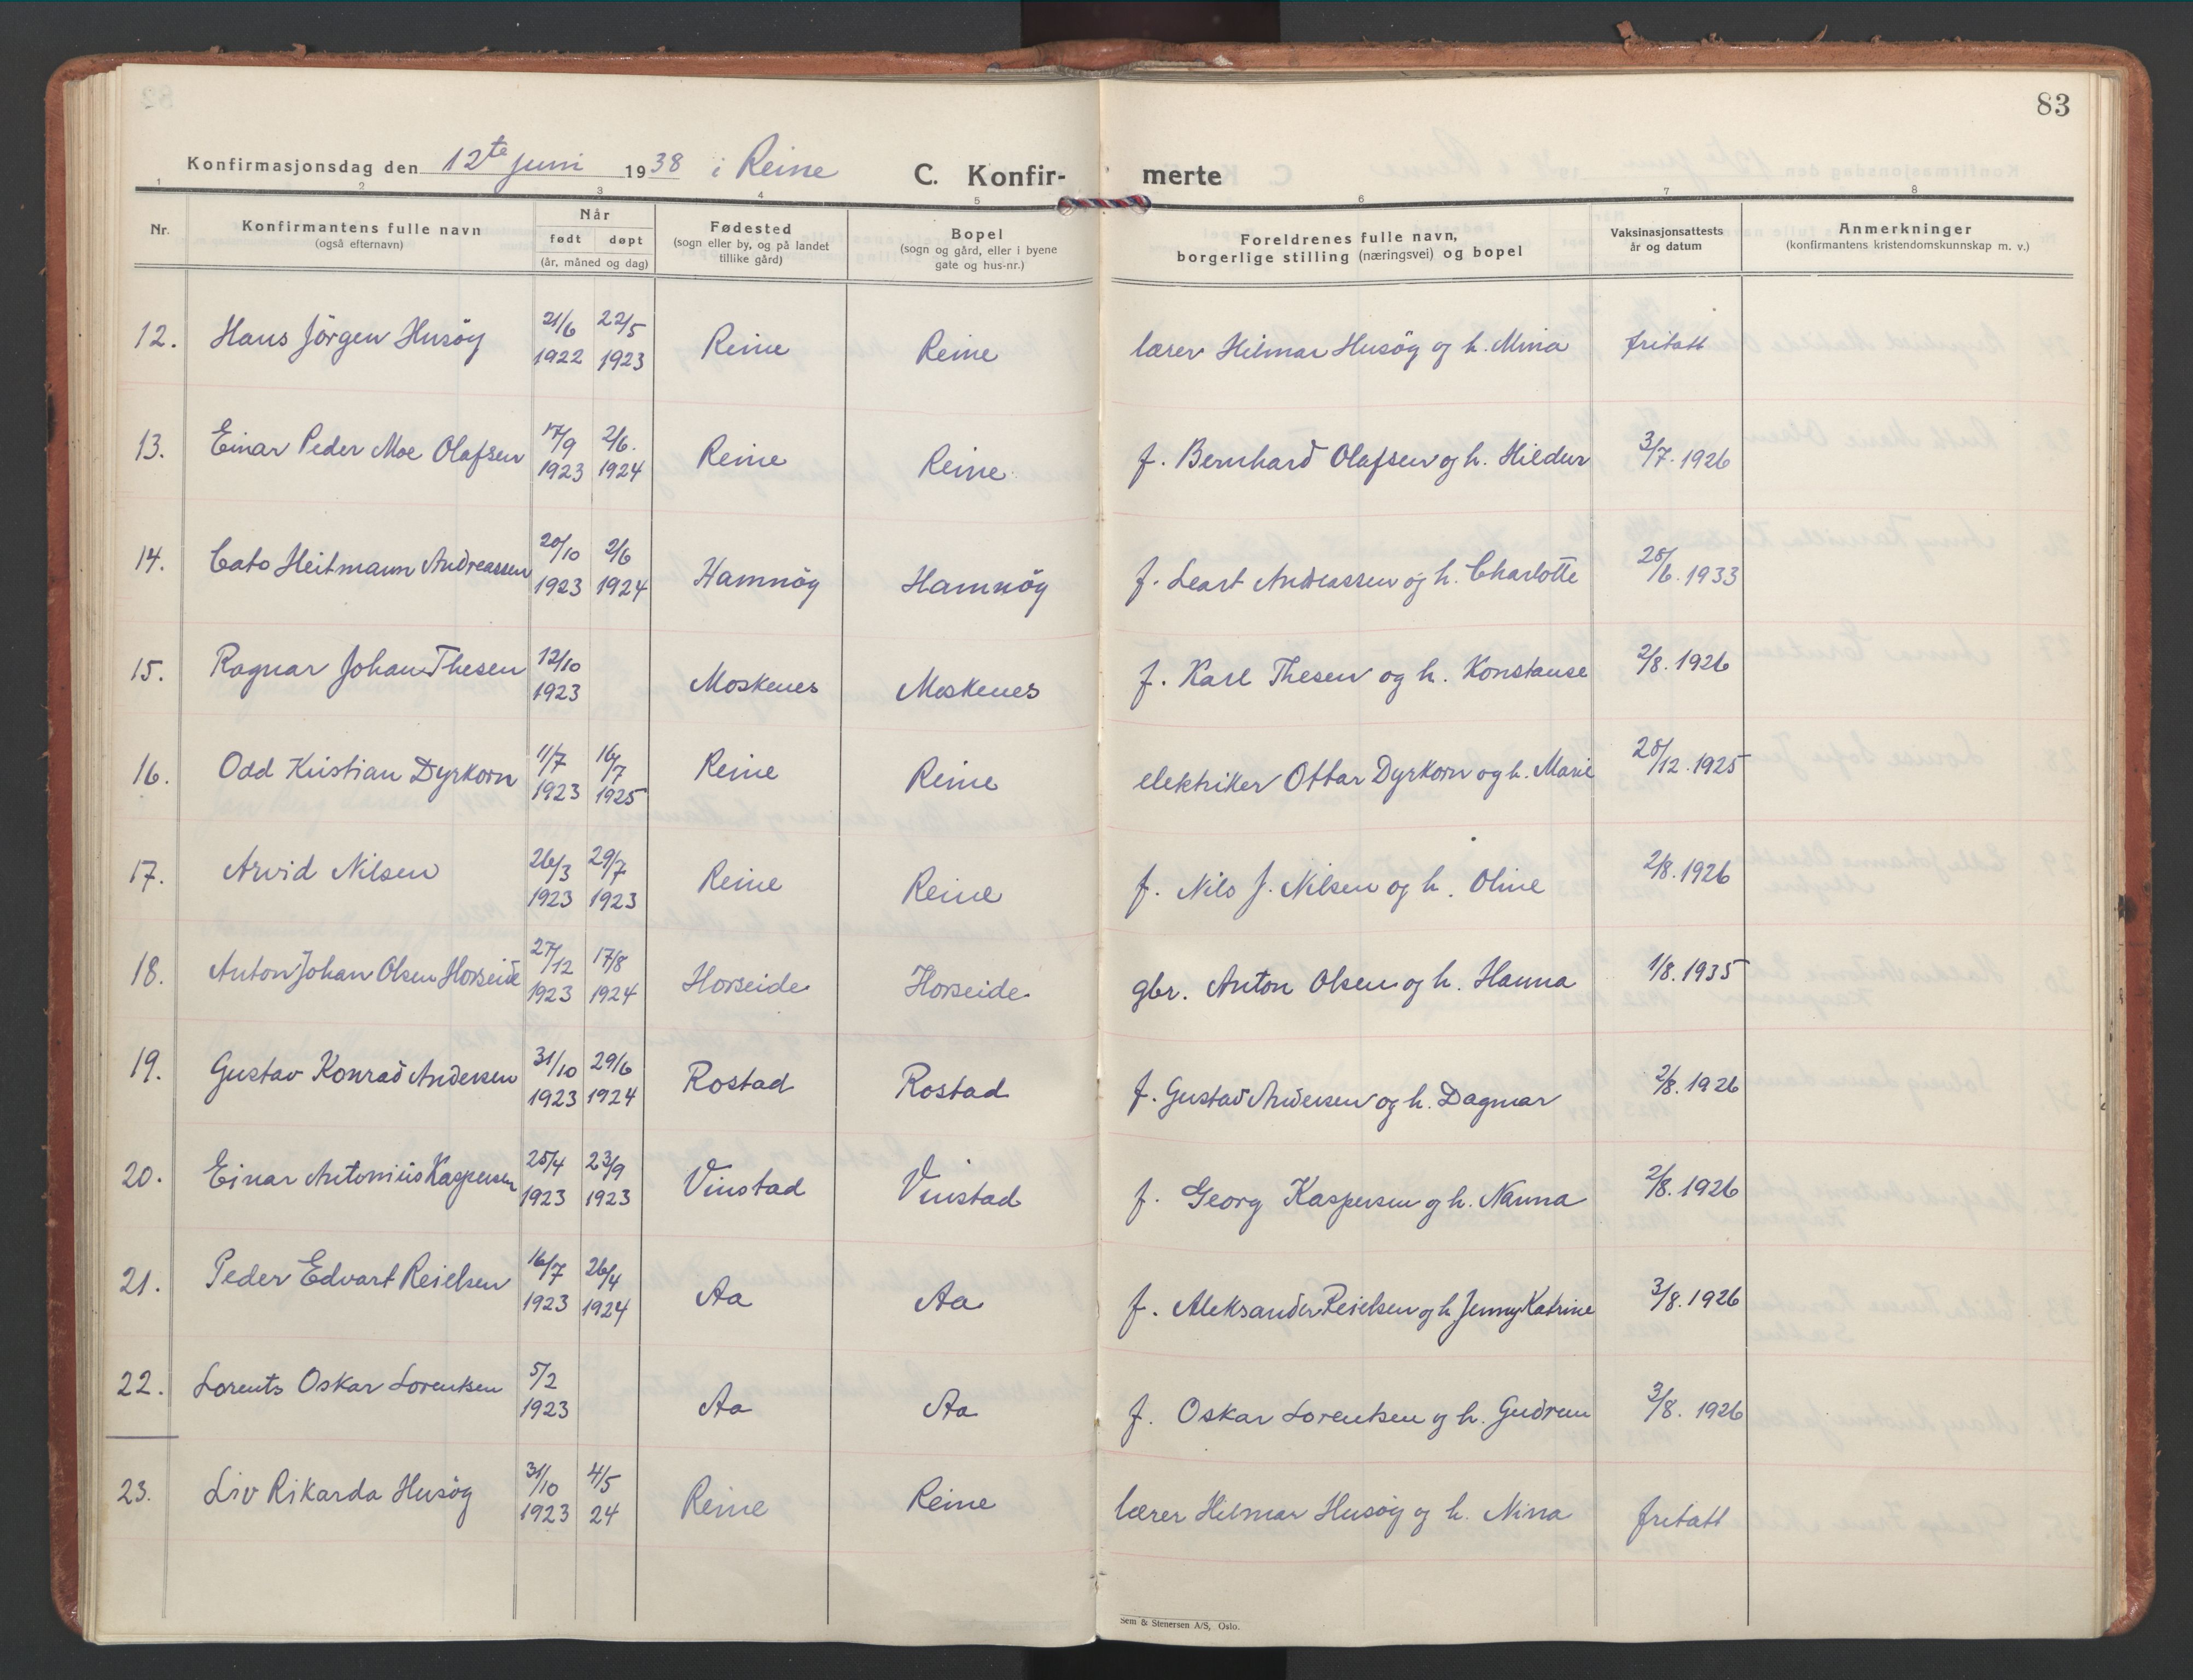 83
Konfirmasjonsdag den 12te juni 1938 i Reine C. Konfirmerte
1 2 3 4 5 6 7 8
Nr. Konfirmantens fulle navn (også efternavn) Når født døpt (år, måned og dag) Fødested (sogn eller by, og på landet tillike gård) Bopel (sogn og gård, eller i byene gate og hus-nr.) Foreldrenes fulle navn, borgerlige stilling (næringsvei) og bopel Vaksinasjonsattests år og datum Anmerkninger (konfirmantens kristendomskunnskap m. v.)
12. Hans Jörgen Husöy 21/6 1922 22/5 1923 Reine Reine lærer Hilmar Husöy og h. Mina fritatt
13. Einar Peder Moe Olafsen 17/9 1923 2/6. 1924 Reine Reine f. Bernhard Olafsen og h. Hildur 3/7. 1926
14. Cato Heitmann Andreassen 20/10 1923 2/6 1924 Hamnöy Hamnöy f. Leart Andreassen og h. Charlotte 28/6. 1933
15. Ragnar Johan Thesen 12/10 1923 Moskenes Moskenes f. Karl Thesen og h. Konstanse 2/8. 1926
16. Odd Kristian Dyrkorn 11/7 1923 16/7 1925 Reine Reine elektriker Ottar Dyrkorn og h. Marie 28/12. 1925
17. Arvid Nilsen 26/3 1923 29/7 1923 Reine Reine f. Nils J. Nilsen og h. Oline 2/8. 1926
18. Anton Johan Olsen Horseide 27/12 1923 17/8 1924 Horseide Horseide gbr. Anton Olsen og h. Hanna 1/8. 1935
19. Gustav Konrad Andersen 31/10 1923 29/6 1924 Rostad Rostad f. Gustav Andersen og h. Dagmar 2/8. 1926
20. Einar Antonius Kaspersen 25/4 1923 23/9 1923 Vinstad Vinstad f. Georg Kaspersen og h. Nanna 2/8. 1926
21. Peder Edvart Reielsen 16/7 1923 26/4 1924 Aa Aa f. Aleksander Reielsen og h. Jenny Katrine 3/8. 1926
22. Lorents Oskar Lorentsen 5/2 1923 Aa Aa f. Oskar Lorentsen og h. Gudrun 3/8. 1926
23. Liv Rikarda Husöy 31/10 1923 4/5 24 Reine Reine lærer Hilmar Husöy og h. Nina fritatt
Sem & Stenersen A/S, Oslo.